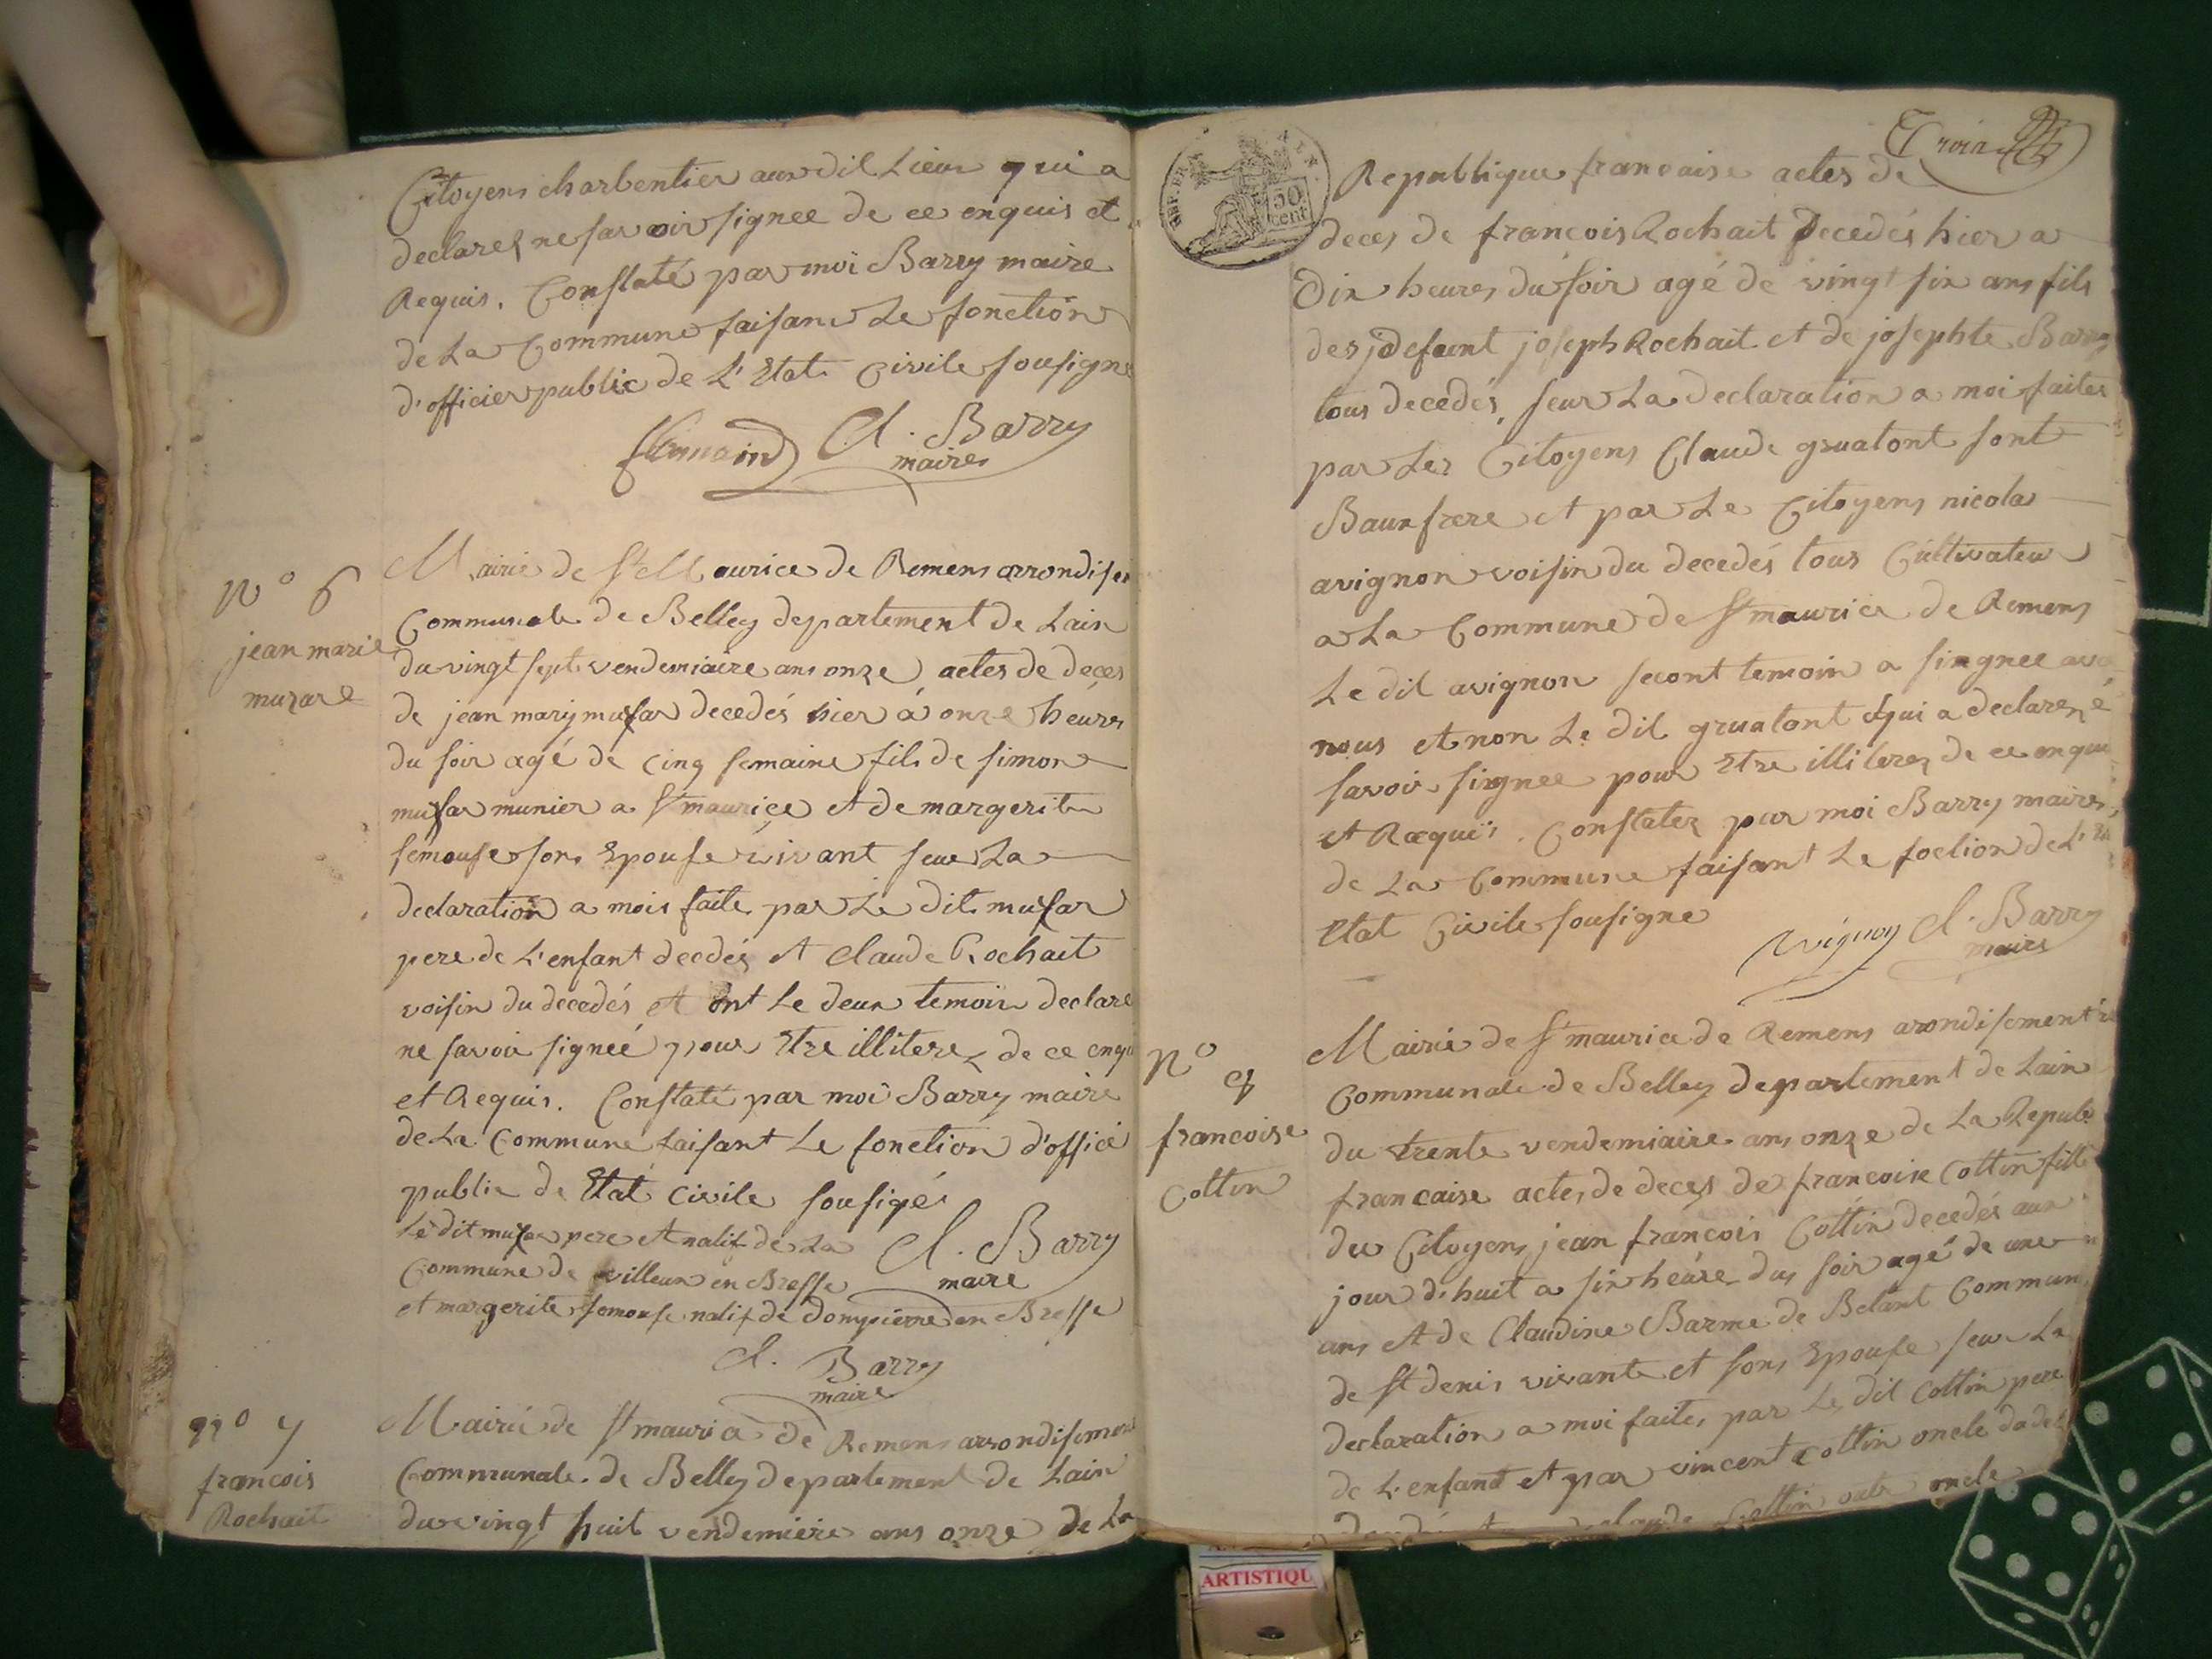 Citoyens charbentier aux dit Lieux qui a
declarez ne savoir signee de ce enquis et
Requis. Constaté par moi Barry maire
de La Commune faisant Le fonction
d'officier public de L'Etat Civile sousigne
Cl. Barry
maire
N° 6
jean marie
muzare
Mairie de St Maurice de Remens arrondise
Communale de Belley departement de Lain
du vingt sept vendemiaire ans onze actes de deces
de jean mary mussar decedés hier á onze heures
du soir agé de cinq semaine fils de simon
mussar munier a St maurice et de margerite
semouse sons Epouse vivant seur La
declaration a mois faite par Le dit mussar
pere de L'enfant decdés et Claude Rochait
voisin du decedés et ont Le deux temoin declare
ne savoir signeé pour Etre illiterez de ce enqu
et Requis. Constaté par moi Barry maire
de La Commune faisant Le fonction d'officie
public de Etat Civile sousigé
Le dit mussar pere et natif de La
Commune de villeur en Bresse
et margerite semouse natif de dompierre en Bresse
Cl. Barry
maire
Cl. Barry
maire
n° 7
francois
Rochait
Mairié de St maurice de Remens arrondisemen
Communale de Belley departement de Lain
du vingt huit vendemiere ans onze de La
50
cent
Republique francaise actes de
deces de francois Rochait Decedés hier a
Dix heures du soir agé de vingt six ans fils
des defunt joseph Rochait et de josephte Barry
tous decedés, seur La declaration a moi faites
par Les Citoyens Claude gruatont sont
Baux frere et par Le Citoyens nicola
avignon voisin du decedés tous Cultivateur
a La Commune de St maurice de Remens
Le dit avignon secont temoin a singnee avec
nous et non Le dit gruatont qui a declare né
savoir signee pour Etre illiterez de ce enqui
et Requis. Constatez par moi Barry maire
de La Commune faisant Le foction de L'
Etat Civile sousigne
avignon Cl. Barry
maire
N°
8
francoise
Cottin
Mairié de St maurice de Remens arondisement
Communale de Belley departement de Lain
du trente vendemiaire ans onze de La Repub
francaise actes de deces de francoise Cottin fille
du Citoyens jean francois Cottin decedés aux
jour d'huit a six heure du soir agé de une
ans et de Claudine Barme de Belant Commun
de St denis vivante et sons Epouse seur La
declaration a moi faite par Le dit Cottin pere
de L'enfant et par vincent Cottin oncle
claude Cottin oncle
ARTISTIQU